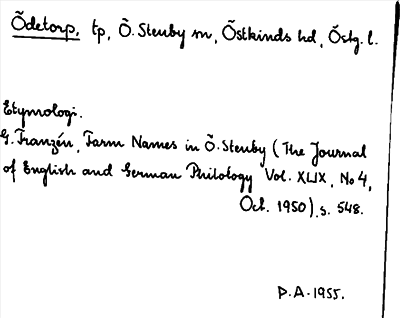 Ödetorp, tp, Ö. Stenby sn, Östkinds hd, Östg. l.
Etymologi.
G. Franzén, Farm Names in Ö. Stenby (The Journal
of English and German Philology Vol. XLIX, No 4,
Oct. 1950), s. 548.
P.A. 1955.